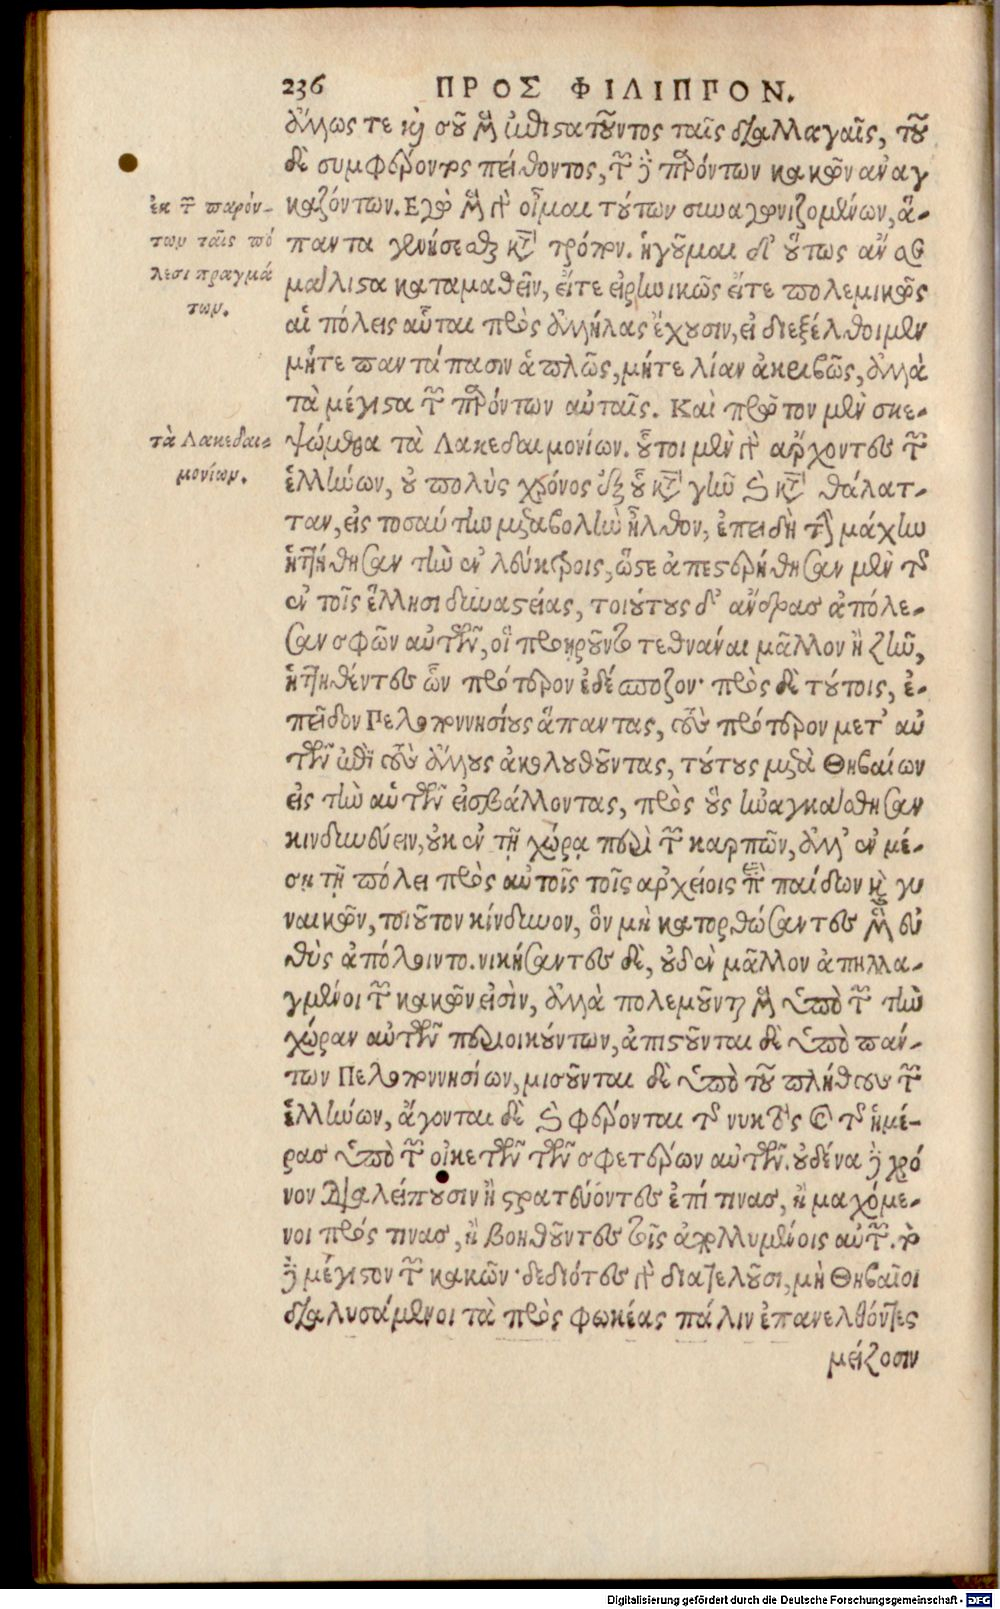 236 ΠΡΟΣ ΦΙΛΙΠΠΟΝ.
ἄλλως τε καὶ σοῦ μὲν ἐπιστατοῦντος ταῖς διαλλαγαῖς, τοῦ
δὲ συμφέροντος πείθοντος, τῶν δὲ παρόντων κακῶν αναγ
καζόντων. Εγὼ μὲν γὰρ οἶμαι τούτων συναγωνιζομένων, ἅ-
παντα γενήσεσθαι κατὰ τρόπον. ἡγοῦμαι δ' οὕτως αν σε
μάλιστα καταμαθεῖν, εἴτε εἰρηνικῶς εἴτε πολεμικῶς
αἱ πόλεις αὗται πρὸς ἀλλήλας ἔχουσιν, εἰ διεξέλθοιμεν
μήτε παντάπασιν ἁπλῶς, μήτε λίαν ἀκριβῶς, ἀλλὰ
τὰ μέγιστα τῶν παρόντων αὐταῖς. Καὶ πρῶτον μὲν σκε-
ψώμεθα τὰ Λακεδαιμονίων. οὗτοι μὲν γὰρ ἄρχοντες τῶν
ἑλλήνων, οὐ πολὺς χρόνος ἐξ οὗ κατὰ γῆν καὶ κατὰ θάλατ-
ταν, εἰς τοσαύτην μεταβολὴν ἦλθον, ἐπειδὴ τὴν μάχην
ἡττήθησαν τὴν ἐν λεύκτροις, ὥστε ἀπεστερήθησαν μὲν τῆς
ἐν τοῖς ἕλλησι δυναστείας, τοιούτους δ' ἄνδρας ἀπόλε-
σαν σφῶν αὐτῶν, οἳ προῃροῦντο τεθνάναι μᾶλλον ἢ ζῆν,
ἡττηθέντες ὧν πρότερον ἐδέσποζον· πρὸς δὲ τούτοις, ἐ-
πεῖδον Πελοποννησίους ἅπαντας, τοὺς πρότερον μετ' αὐ
τῶν ἐπὶ τοὺς ἄλλους ἀκολουθοῦντας, τούτους μετὰ Θηβαίων
εἰς τὴν αὑτῶν εἰσβάλλοντας, πρὸς οὓς ἠναγκάσθησαν
κινδυνεύειν, οὐκ ἐν τῇ χώρᾳ περὶ τῶν καρπῶν, ἀλλ' ἐν μέ-
σῃ τῇ πόλει πρὸς αὐτοῖς τοῖς αρχείοις περὶ παίδων καὶ γυ
ναικῶν, τοιοῦτον κίνδυνον, ὃν μὴ κατορθώσαντες μὲν εὐ
θὺς ἀπόλοιντο. νικήσαντες δὲ, οὐδὲν μᾶλλον ἀπηλλα-
γμένοι τῶν κακῶν εἰσὶν, ἀλλὰ πολεμοῦνται μὲν ὑπὸ τῶν τὴν
χώραν αὐτῶν περιοικούντων, ἀπιστοῦνται δὲ ὑπὸ πάν-
των Πελοποννησίων, μισοῦνται δὲ ὑπὸ τοῦ πλήθους τῶν
ἑλλήνων, ἄγονται δὲ καὶ φέρονται τῆς νυκτὸς καὶ τῆς ἡμέ-
ρας ὑπὸ τῶν οἰκετῶν τῶν σφετέρων αὐτῶν. οὐδένα δὲ χρό
νον διαλείπουσιν ἢ στρατεύοντες ἐπί τινας, ἢ μαχόμε-
νοι πρός τινας, ἢ βοηθοῦντες τοῖς ἀπολλυμένοις αὐτῶν. τὸ
δὲ μέγιστον τῶν κακῶν· δεδιότες γὰρ διατελοῦσι, μὴ Θηβαῖοι
διαλυσάμενοι τὰ πρὸς φωκέας πάλιν ἐπανελθόντες
μείζοσιν
ἐκ τῶν παρόν-
των ταῖς πό
λεσι πραγμά
των.
τὰ Λακεδαι-
μονίων.
Digitalisierung gefördert durch die Deutsche Forschungsgemeinschaft - DFG